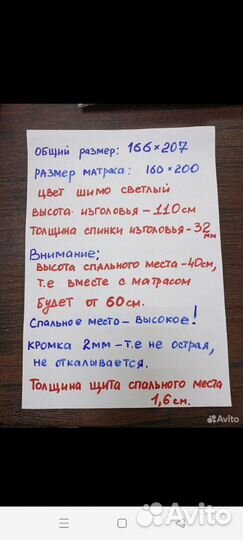 Общий размер: 166×207
Размер матраса: 160×200
цвет шимо светлый
высота изголовья – 110см
Толщина спинки изголовья – 32 мм
Внимание;
высота спального места – 40см,
т.е вместе с матрасом
будет от 60см.
Спальное место – высокое!
кромка 2мм – т.е не острая,
не откалывается.
Толщина щита спального места
1,6см.
Avito
Avito